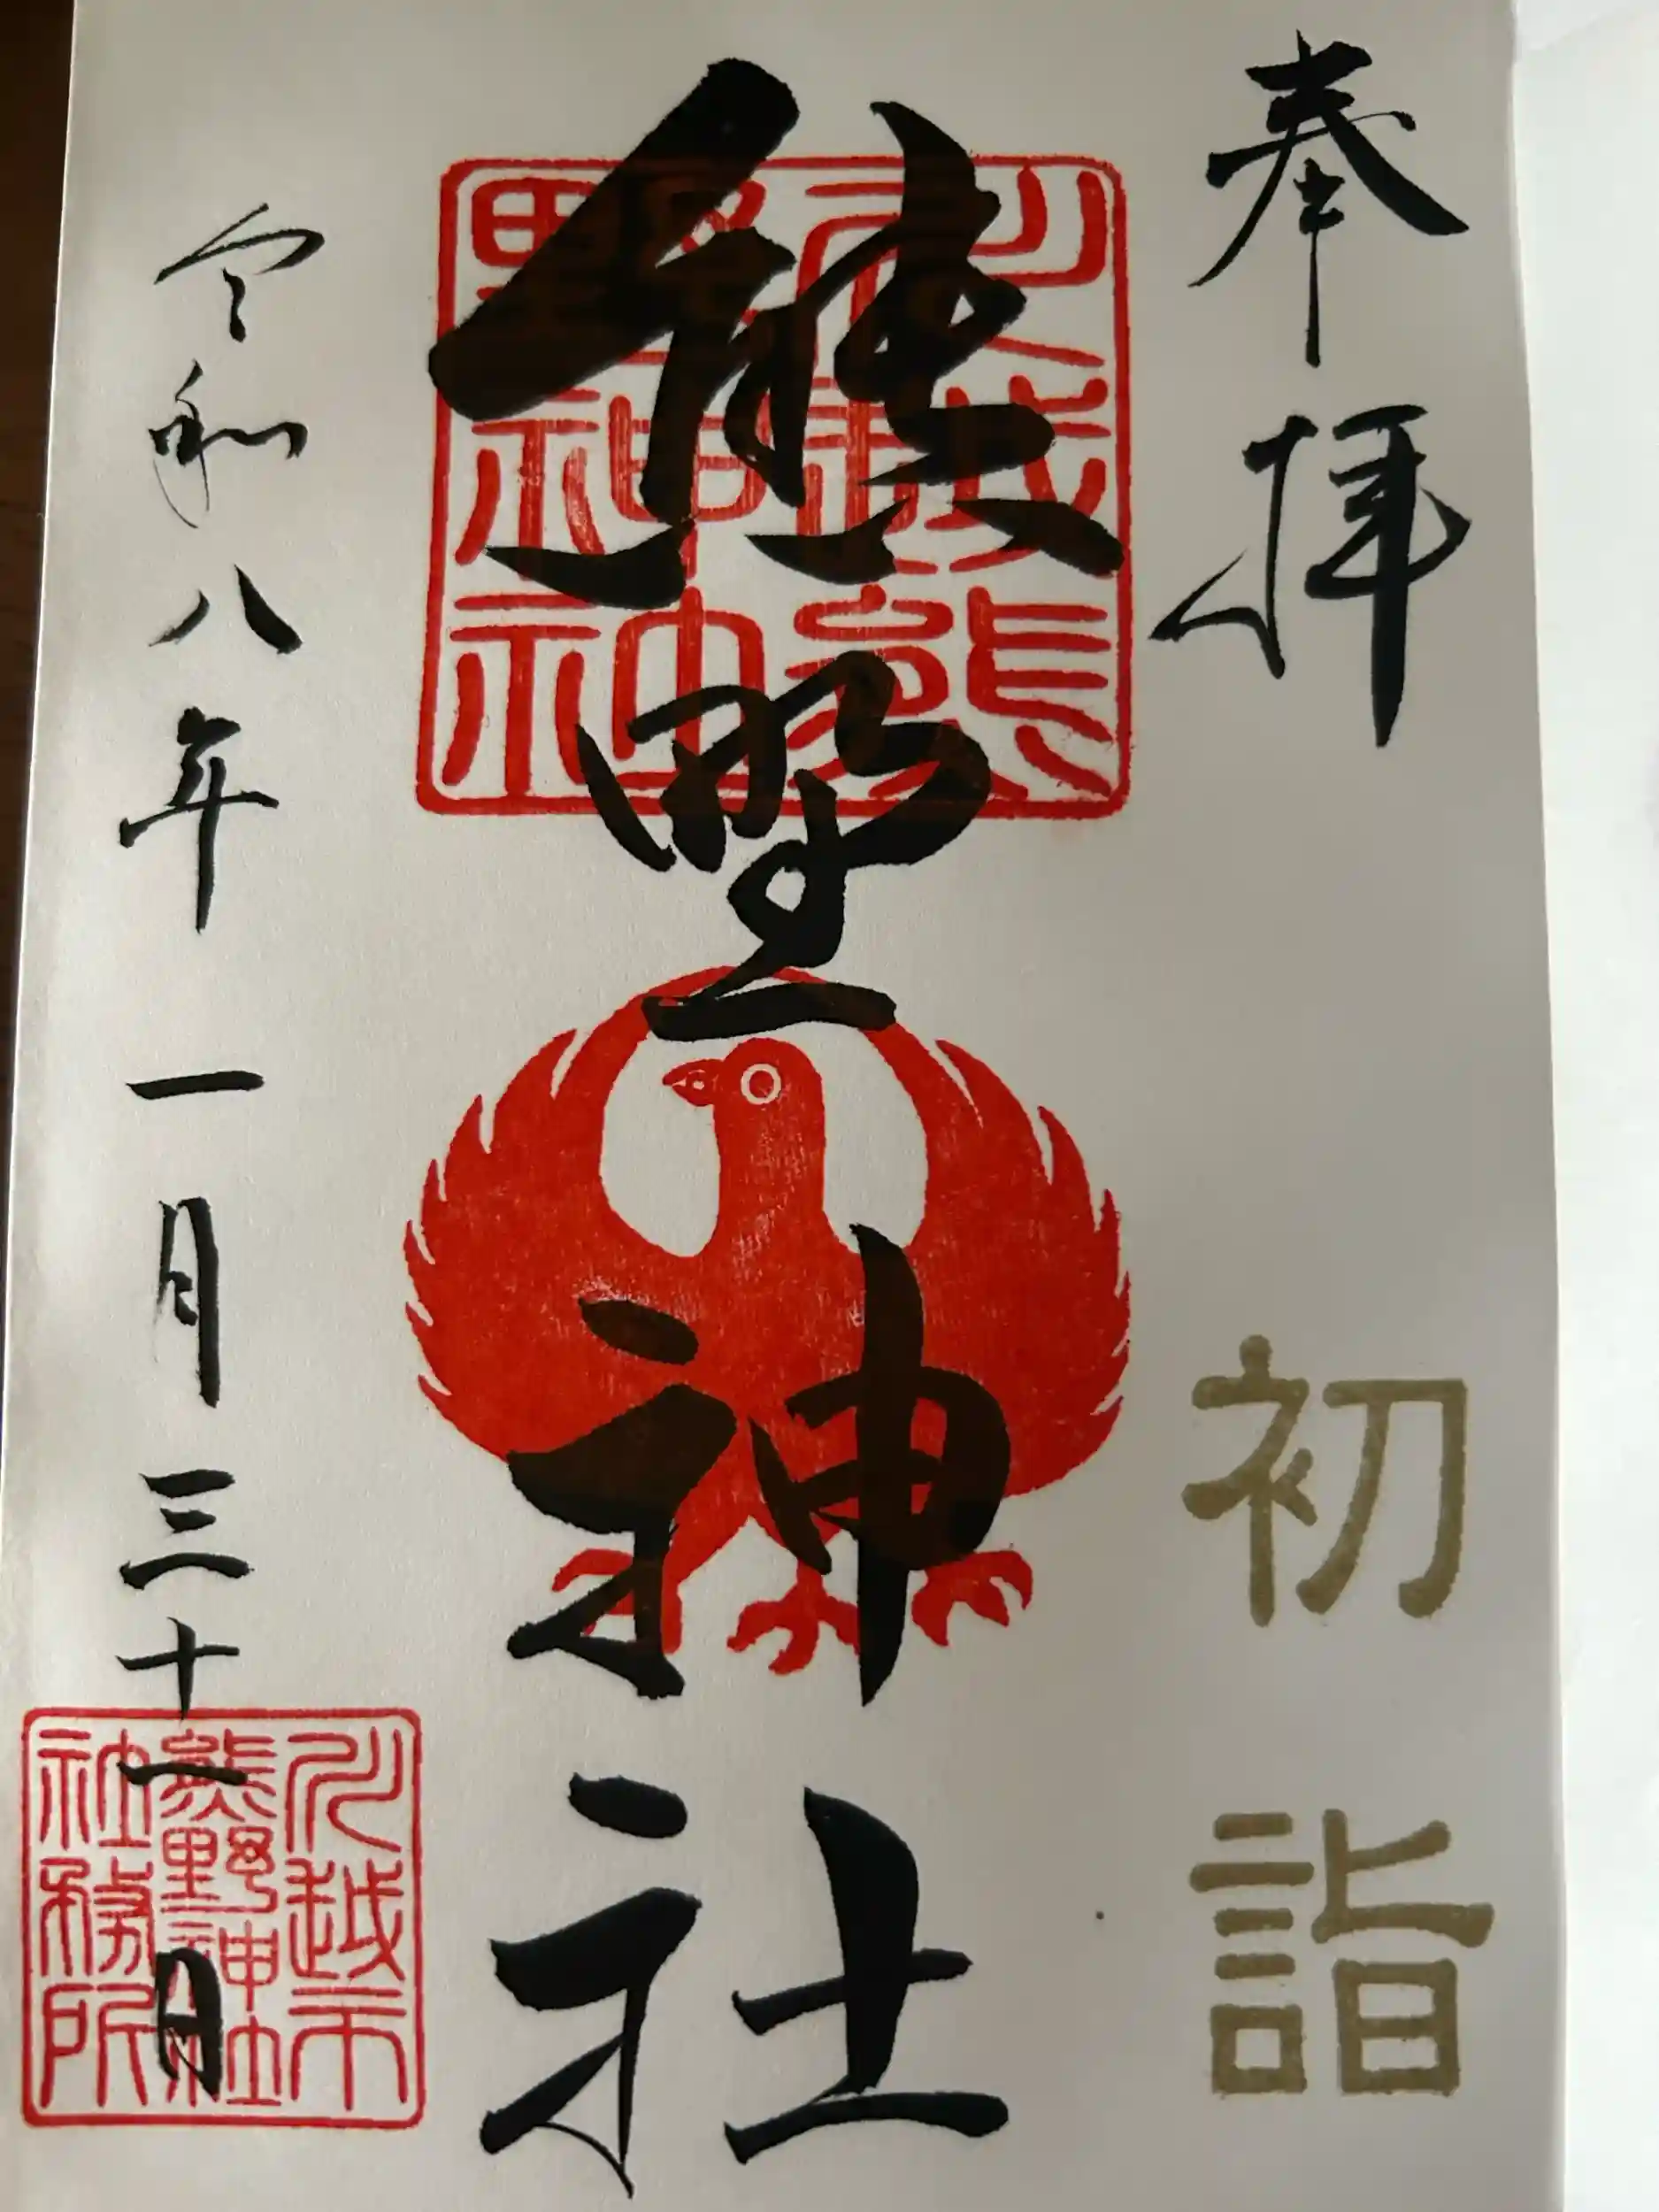 奉拝
初詣
熊野神社
川越熊
野神社
令和八年一月三十一日
川越市
熊野神社
社務所